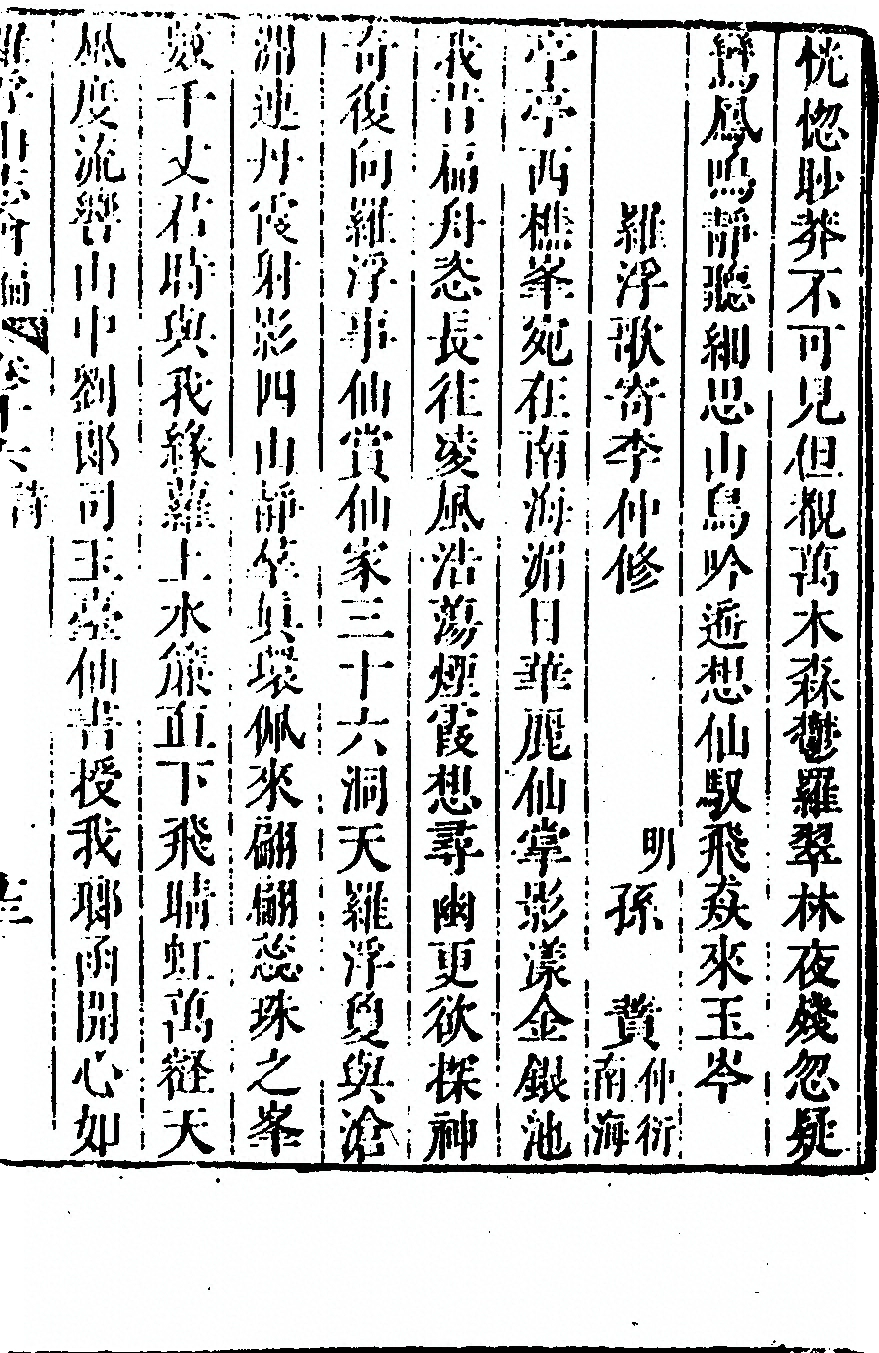 恍惚眇莽不可見但覩萬木森鬱羅翠林夜殘忽疑
鸞鳳鳴靜聽細思山鳥吟遥想仙馭飛猋來玉岑
羅浮歌寄李仲修 明孫蕡仲衍南海
亭亭西樵峯宛在南海湄日華麗仙掌影漾金銀池
我昔扁舟恣長往凌風浩蕩煙霞想尋幽更欲探神
奇復向羅浮事仙賞仙家三十六洞天羅浮夐與滄
洲連丹霞射影四山靜羣真環佩來翩翩蕊珠之峯
數千丈君時與我緣蘿上水簾直下飛晴虹萬壑天
風度流響山中劉郎司玉臺仙書授我瑯函開心如
羅浮山志會編 卷十六 詩 十三